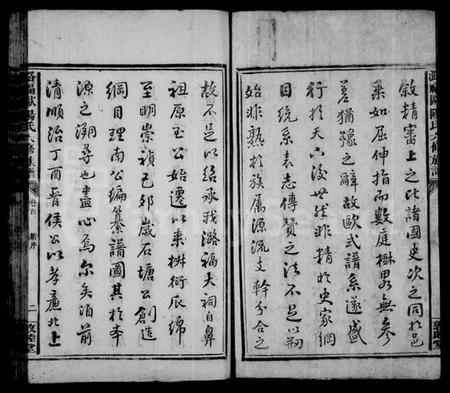 敘精審上之比諸國史次之同於邑
乘如屈伸指而數庭樹畧無參
差猶豫之辭故歐式譜系遂盛
行於天下後世然非精於史家綱
目統系表志傳贊之法不足以荊
始非熟於族屬源流支幹分合之
故不足以紹承我潞福大祠自鼻
祖原玉公始遷以來椒衍瓜綿
至明崇禎己卯歲石塘公創造
綱目理南公編纂譜圖其於本
源之溯尋也盡心焉爾矣洎前
清順治丁酉晉侯公以孝廉北上